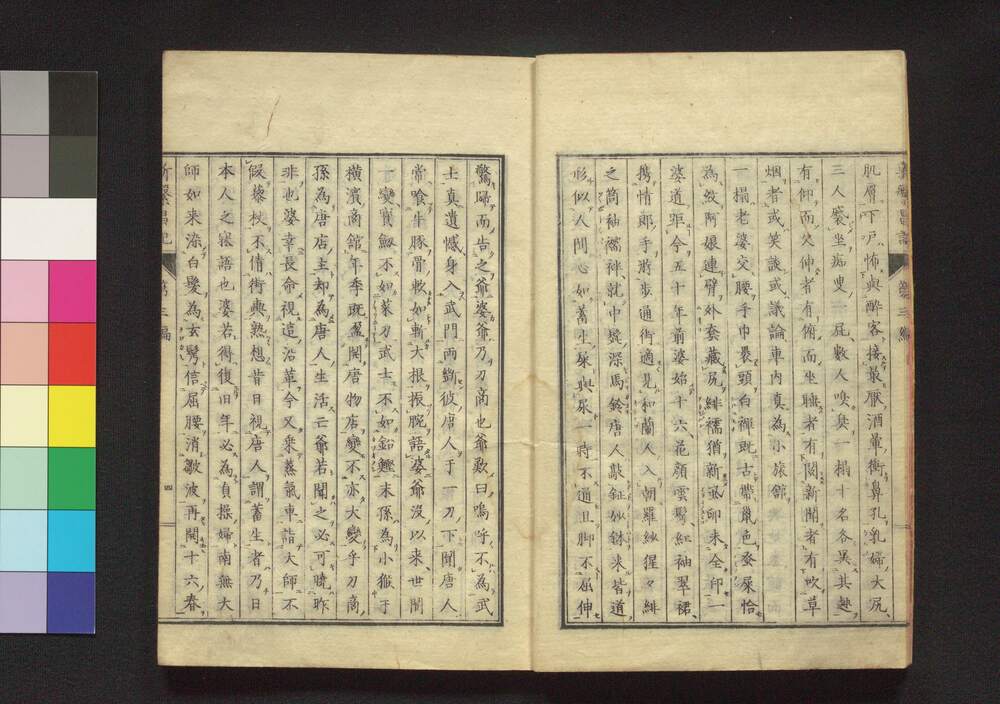 肌膚下戸怖與醉客接最厭酒葷衝鼻孔乳婦大尻
三人褰坐痴叟一屁數人嗅臭一榻十名各異其趣
有仰而欠伸者有俯而坐睡者有閱新聞者有吹草
烟者或笑談或議論車内真為小旅館
一榻老婆交腰手巾裹頭白褌既古帶黴色癸屎恰
為紋阿娘連臂外套藏尻緋襦猶新 印未全印一
婆道距今五十年前婆始十六花顏雲髩紅袖翠裙
携情郎手將步通街適見和蘭人入朝羅紗猩々緋
之筒袖襦袢就中 深馬鈴唐人敲鉦妙 来皆道
形似人間心如畜生屎與尿一時不通且脚不屈伸
驚歸而告之爺婆爺乃刀商也爺歎曰嗚呼不為武
士真遺憾身入武門兩斷彼唐人于一刀下聞唐人
常喰牛豚骨軟如斬大根扼腕語婆爺没以来世開
一變寶劔不如菜刀武士不如鉛 末孫為小猴于
横濱商館年季既盈開唐物店變不亦大變乎刀商
孫為唐店主却為唐人生活亡爺若聞之必可曉昨
非也婆幸長命視這沿革今又乘蒸氣車詣大師不
假藜杖不倩街輿熟想昔日視唐人謂畜生者乃日
本人之寐語也婆若得復旧年必為貞操婦南無大
師如来染白鬢為玄髩信屈腰消皺波再開十六春
新繁昌記 第三編 四